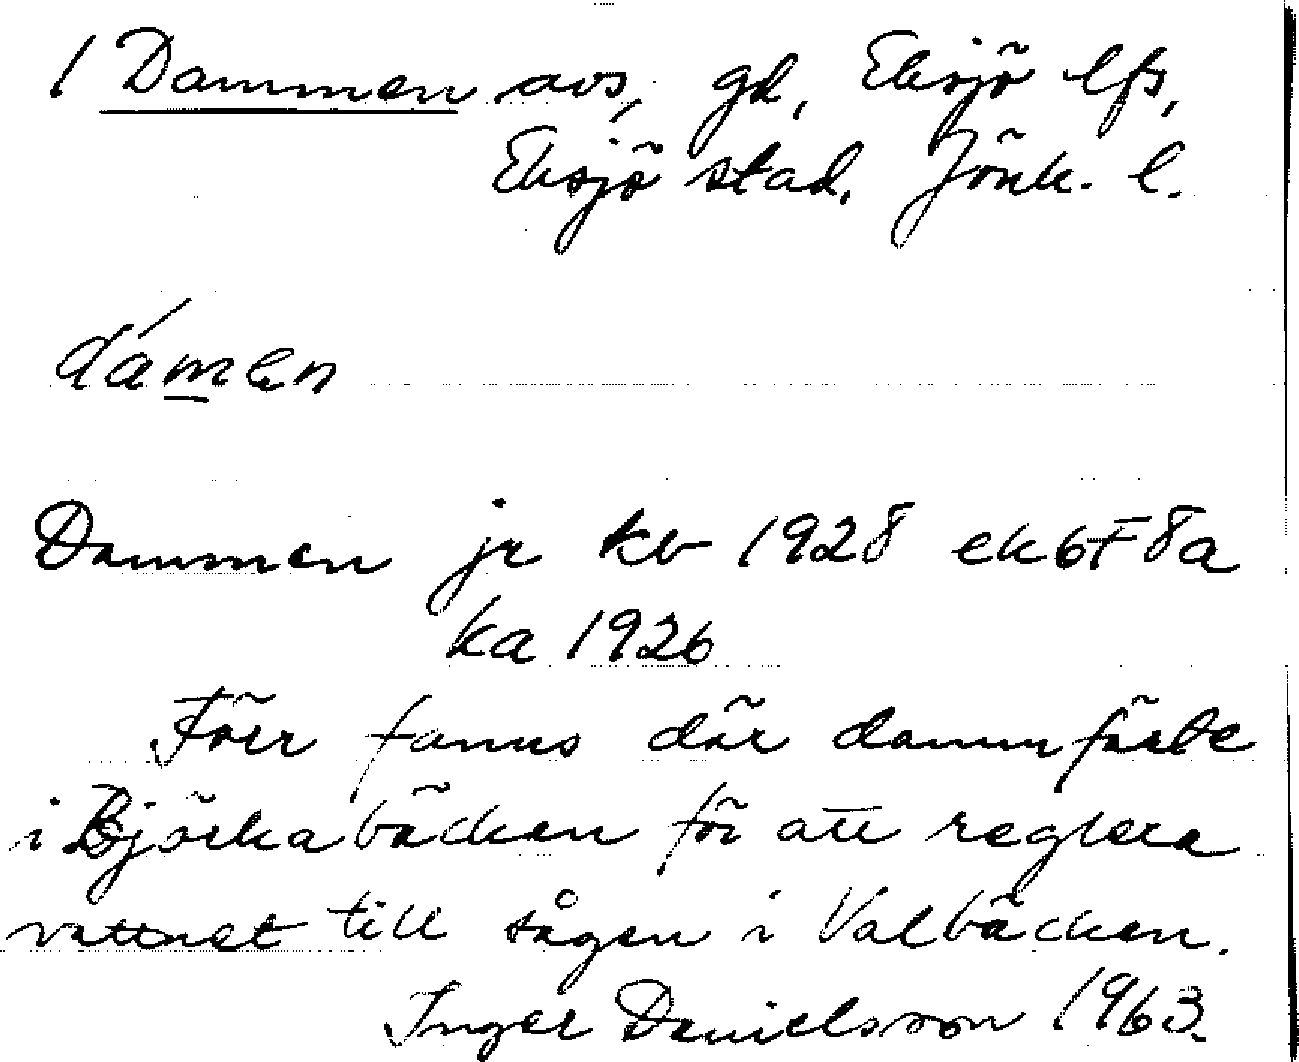 1 Dammen avs, gd, Eksjö lfs,
Eksjö stad. Jönk. l.
dámen
Dammen je kv 1928 ek 6F8a
ka 1926
Förr fanns där dammfäste
i Björkabäcken för att reglera
vattnet till sågen i Valbäcken.
Inger Danielsson 1963.